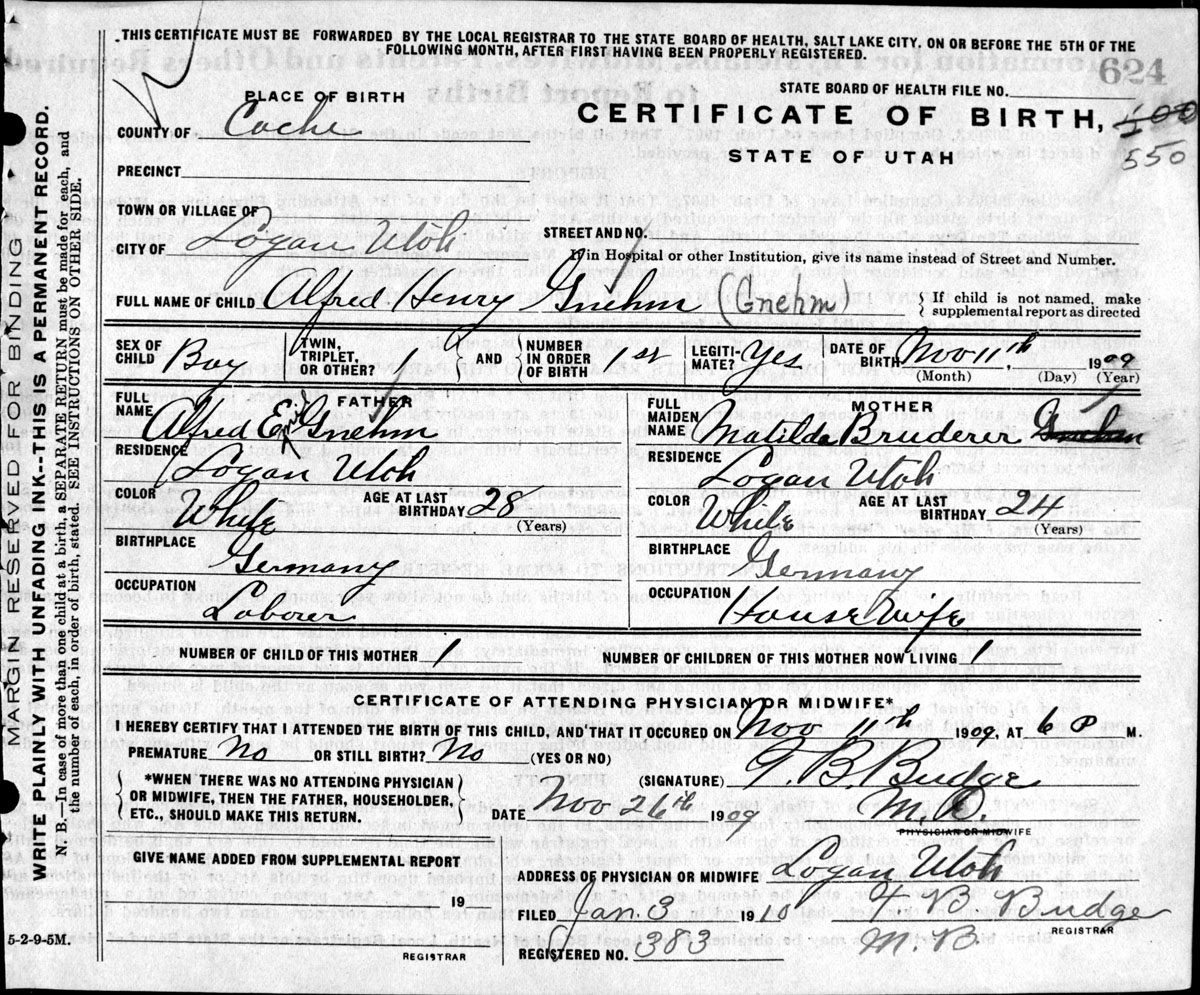 THIS CERTIFICATE MUST BE FORWARDED BY THE LOCAL REGISTRAR TO THE STATE BOARD OF HEALTH, SALT LAKE CITY, ON OR BEFORE THE 5TH OF THE
FOLLOWING MONTH, AFTER FIRST HAVING BEEN PROPERLY REGISTERED.
624
STATE BOARD OF HEALTH FILE NO.
PLACE OF BIRTH
CERTIFICATE OF BIRTH,
550
STATE OF UTAH
COUNTY OF Cache
PRECINCT
TOWN OR VILLAGE OF
CITY OF Logan Utah
STREET AND NO.
If in Hospital or other Institution, give its name instead of Street and Number.
FULL NAME OF CHILD Alfred Henry Gnehm (Gnehm)
If child is not named, make
supplemental report as directed
SEX OF CHILD Boy TWIN, TRIPLET, OR OTHER? 1 AND NUMBER IN ORDER OF BIRTH 1st LEGITI-MATE? Yes DATE OF BIRTH Nov 11th, 1909
(Month) (Day) (Year)
FATHER
FULL NAME Alfred Emil Gnehm
RESIDENCE Logan Utah
COLOR White AGE AT LAST BIRTHDAY 28
(Years)
BIRTHPLACE Germany
OCCUPATION Laborer
MOTHER
FULL MAIDEN NAME Matilda Bruderer Gnehm
RESIDENCE Logan Utah
COLOR White AGE AT LAST BIRTHDAY 24
(Years)
BIRTHPLACE Germany
OCCUPATION Housewife
NUMBER OF CHILD OF THIS MOTHER 1 NUMBER OF CHILDREN OF THIS MOTHER NOW LIVING 1
CERTIFICATE OF ATTENDING PHYSICIAN OR MIDWIFE*
I HEREBY CERTIFY THAT I ATTENDED THE BIRTH OF THIS CHILD, AND THAT IT OCCURED ON Nov 11th 1909, AT 6 P M.
PREMATURE No OR STILL BIRTH? No (YES OR NO)
*WHEN THERE WAS NO ATTENDING PHYSICIAN
OR MIDWIFE, THEN THE FATHER, HOUSEHOLDER,
ETC., SHOULD MAKE THIS RETURN.
(SIGNATURE) T. B. Budge
M.D.
DATE Nov 26th 1909
PHYSICIAN OR MIDWIFE
GIVE NAME ADDED FROM SUPPLEMENTAL REPORT
19
REGISTRAR
ADDRESS OF PHYSICIAN OR MIDWIFE Logan Utah
FILED Jan. 3 1910 Budge
REGISTRAR
REGISTERED NO. 383
5-2-9-5M.
MARGIN RESERVED FOR BINDING
WRITE PLAINLY WITH UNFADING INK---THIS IS A PERMANENT RECORD.
N. B.—In case of more than one child at a birth, a SEPARATE RETURN must be made for each, and
the number of each, in order of birth, stated. SEE INSTRUCTIONS ON OTHER SIDE.